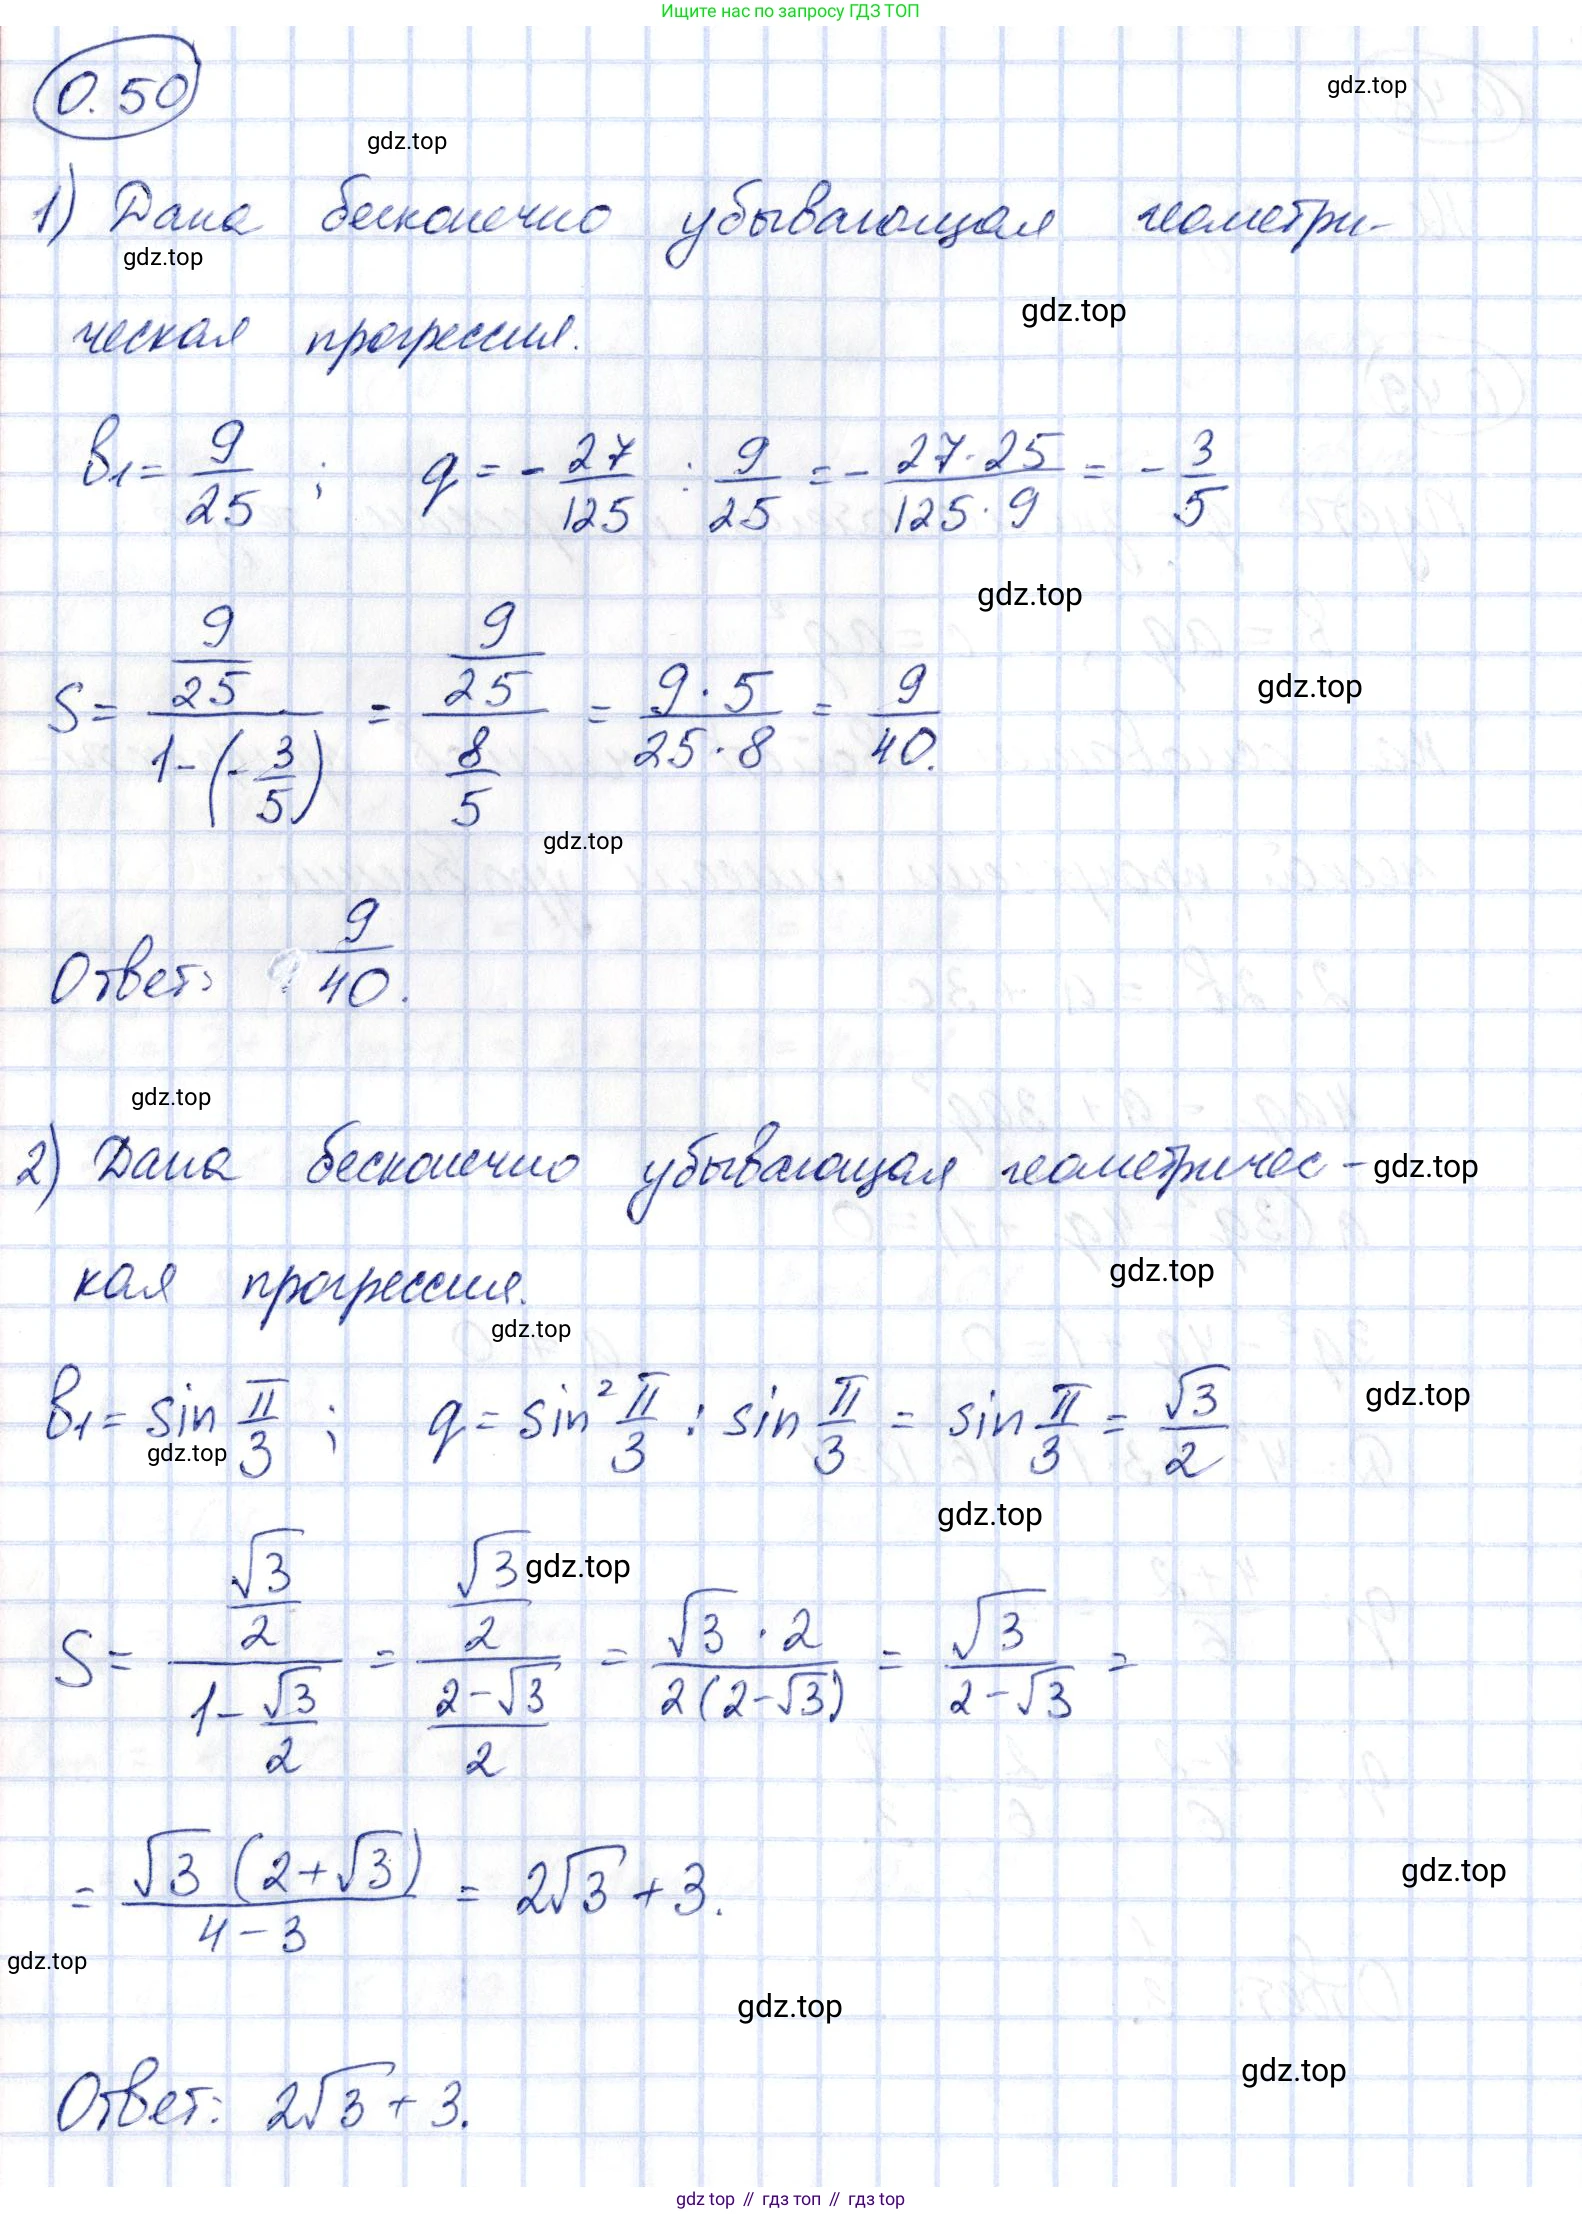 Ищите нас по запросу ГДЗ ТОП
0.50
gdz.top
gdz.top
1) Дана бесконечно убывающая геометри-
gdz.top
ческая прогрессия.
gdz.top
b₁ = 9/25 ; q = - 27/125 : 9/25 = - 27·25/125·9 = - 3/5
gdz.top
S = (9/25)/(1-(-3/5)) = (9/25)/(8/5) = 9·5/25·8 = 9/40.
gdz.top
gdz.top
Ответ: 9/40.
gdz.top
2) Дана бесконечно убывающая геометричес-
gdz.top
кая прогрессия.
gdz.top
gdz.top
b₁ = sin π/3 ; q = sin² π/3 : sin π/3 = sin π/3 = √3/2
gdz.top
gdz.top
gdz.top
gdz.top
S = (√3/2)/(1-√3/2) = (√3/2)/((2-√3)/2) = √3·2/2(2-√3) = √3/(2-√3) =
= √3(2+√3)/(4-3) = 2√3+3.
gdz.top
gdz.top
gdz.top
gdz.top
Ответ: 2√3+3.
gdz top // гдз топ // гдз top